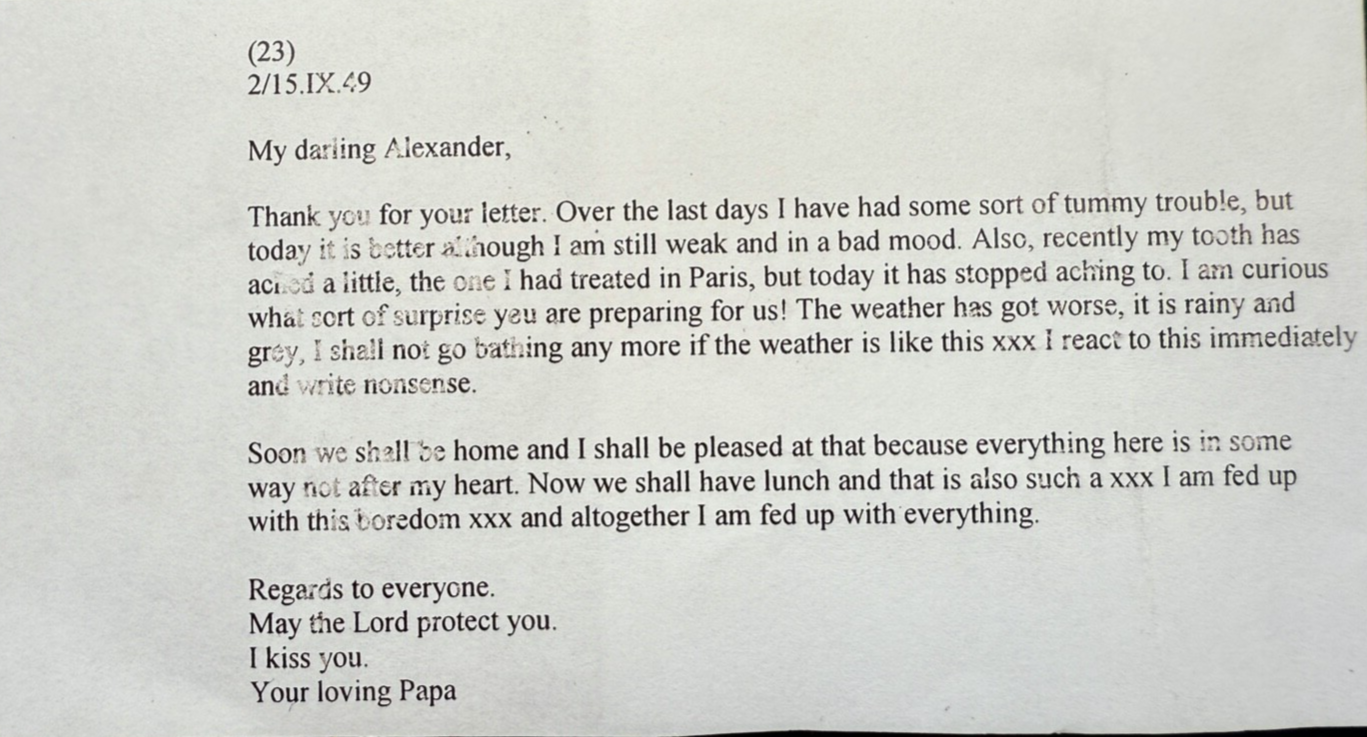 (23)
2/15.IX.49
My darling Alexander,
Thank you for your letter. Over the last days I have had some sort of tummy trouble, but
today it is better although I am still weak and in a bad mood. Also, recently my tooth has
ached a little, the one I had treated in Paris, but today it has stopped aching to. I am curious
what sort of surprise you are preparing for us! The weather has got worse, it is rainy and
grey, I shall not go bathing any more if the weather is like this xxx I react to this immediately
and write nonsense.
Soon we shall be home and I shall be pleased at that because everything here is in some
way not after my heart. Now we shall have lunch and that is also such a xxx I am fed up
with this boredom xxx and altogether I am fed up with everything.
Regards to everyone.
May the Lord protect you.
I kiss you.
Your loving Papa